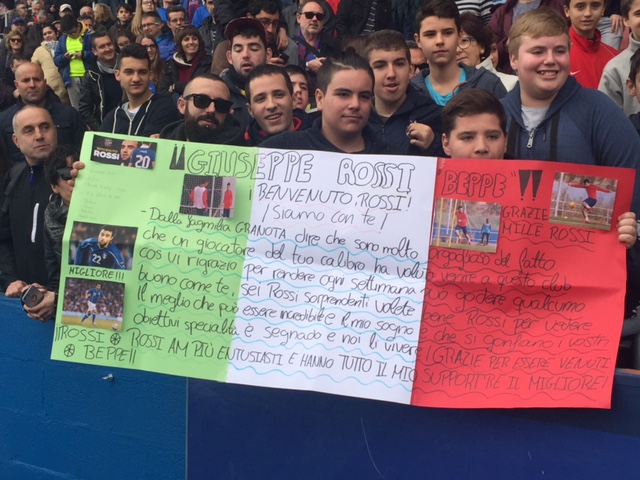 "GIUSEPPE ROSSI "BEPPE"!!
ROSSI
20
¡BENVENUTO, ROSSI!
¡Siamo con te!
GRAZIE
MILLE ROSSI
- Dalla famiglia GRANOTA dire che sono molto orgoglioso del fatto
che un giocatore del tuo calibro ha voluto venire a questo club
così vi rigrazio per rendere ogni settimana può godere qualcuno
buono come te, sei Rossi sorprendenti volete bene Rossi per vedere
Il meglio che può essere incredibile il mio sogno è che si gonfiano i vostri
obiettivi specialità è segnado e noi li vivere ¡GRAZIE PER ESSERE VENUTI
ROSSI AM PIÙ ENTUSIASTI E HANNO TUTTO IL MIO SUPPORT'RE IL MIGLIORE!
22
MIGLIORE!!!
¡¡ROSSI
BEPPE!!